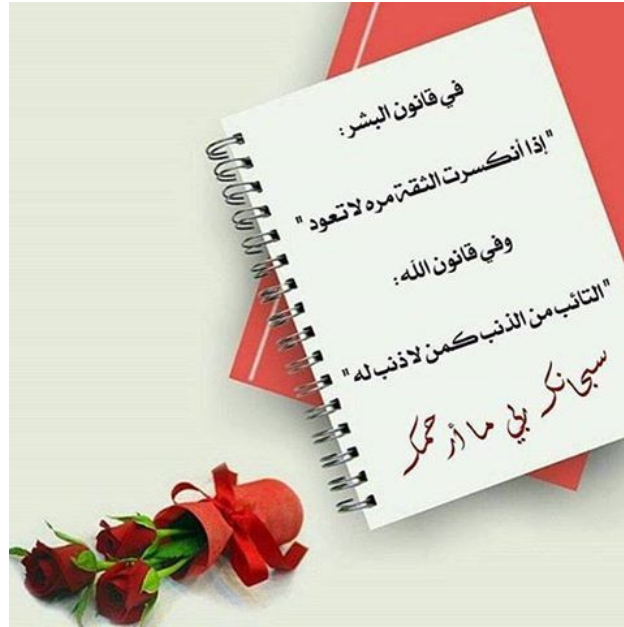 في قانون البشر:
"إذا أنكسرت الثقة مره لا تعود"
وفي قانون الله:
"التائب من الذنب كمن لا ذنب له"
سبحانك ربي ما أرحمك